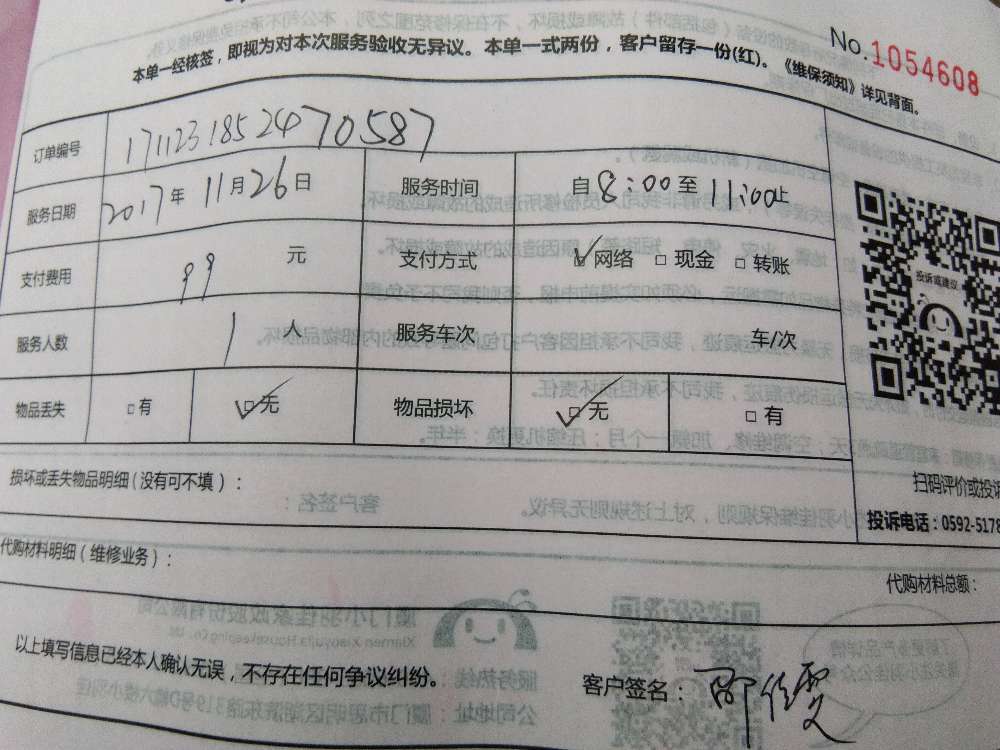 No.1054608
本单一经核签，即视为对本次服务验收无异议。本单一式两份，客户留存一份(红)。《维保须知》详见背面。
订单编号 1711231852470587
服务日期 2017年11月26日 服务时间 自8:00至11:00止
支付费用 99 元 支付方式 网络 现金 转账
服务人数 1 人 服务车次 车/次
物品丢失 有 无 物品损坏 无 有
投诉或建议
损坏或丢失物品明细(没有可不填)：
扫码评价或投诉
投诉电话：0592-5178
代购材料明细(维修业务)：
代购材料总额：
以上填写信息已经本人确认无误，不存在任何争议纠纷。
客户签名：